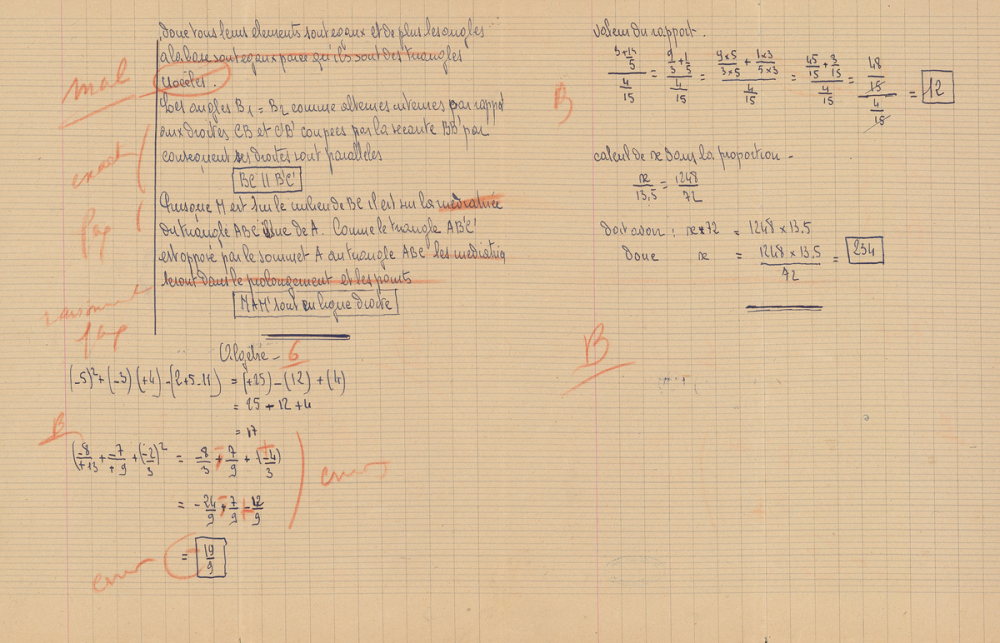 donc tous leurs elements sont egaux et de plus les angles
a la base sont egaux parce qu'ils sont des triangles
isocèles.
mal
Les angles B₁ = B₂ comme alternes internes par rapport
aux droites CB et C'B' coupées par la secante BB' par
consequent ses droites sont parallèles
exact
BC || B'C'
Puisque M est sur le milieu de BC il est sur la mediatrice
du triangle ABC issue de A. Comme le triangle AB'C'
est opposé par le sommet A au triangle ABC les mediatrices
seront dans le prolongement et les points
MAM' sont en ligne droite
Algèbre - 6
(-5)² + (-3)(+4) - (2+5-11) = (+25) - (12) + (4)
= 25 - 12 + 4
= 17
B
(-8/+13 + -7/+9 + (-2/3)² = -8/3 + 7/9 + (-4/3)
= -24/9 + 7/9 - 12/9
= 19/9
erreur
valeur du rapport.
B
= 12
calcul de x dans la proportion -
x/13,5 = 1248/72
doit avoir : x × 72 = 1248 × 13,5
donc x = 1248 × 13,5 / 72 = 234
B